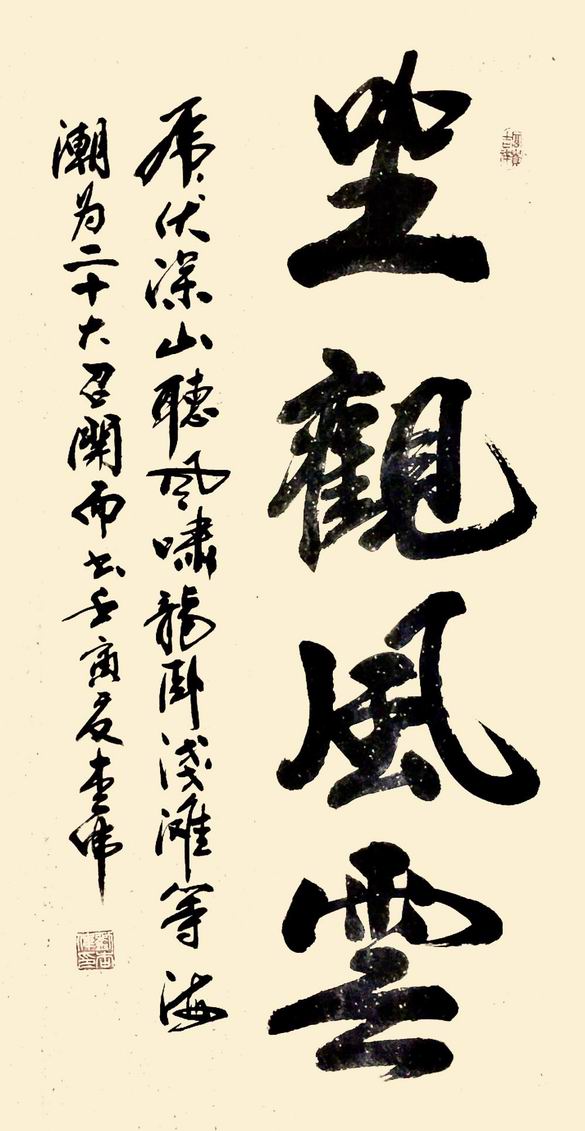 坐觀風雲
虎伏深山聽风嘯龍卧浅滩等海
潮为二十大召開而书壬寅夏李伟